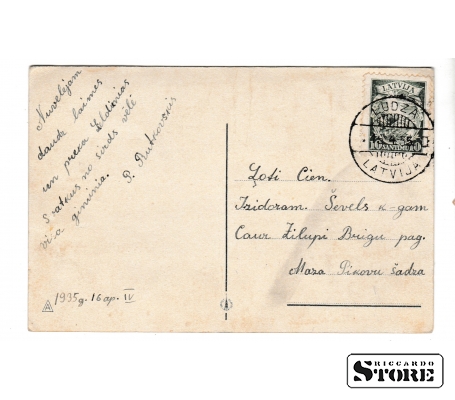 Nuvelejam
daudz laimes
un prieca Leldinias
Svatkus no sirds vēlē
visa gimunia.
P. Rutkovskis
1935 g. 16 ap. IV
LATVIJA
10 SANTIMU 10
LUDZA
LATVIJA
Ļoti Cien.
Izidoram. Ševels k-gam
Caur Zilupi Brigu pag.
Maza Pikovu šadza
RICCARDO
STORE